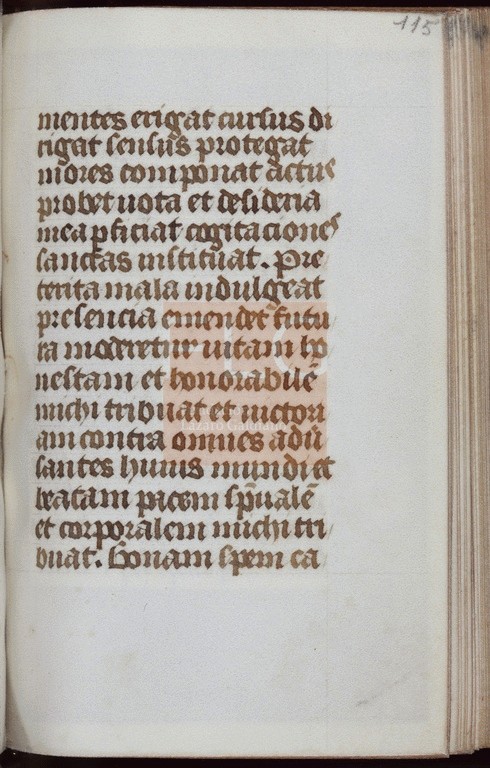 115
mentes erigat cursus di
rigat sensus protegat
mores componat actus
probet uota et desideria
mea ꝑficiat cogitaciones
sanctas instituat. Pre
terita mala indulgeat
presencia emendet futu
ra moderetur uitam ho
nestam et honorabilē
michi tribuat et uictori
am contra omnes adū
santes huius mundi et
beatam pacem sp̄ualē
et corporalem michi tri
buat. Bonam spem ca
Lázaro Galdiano